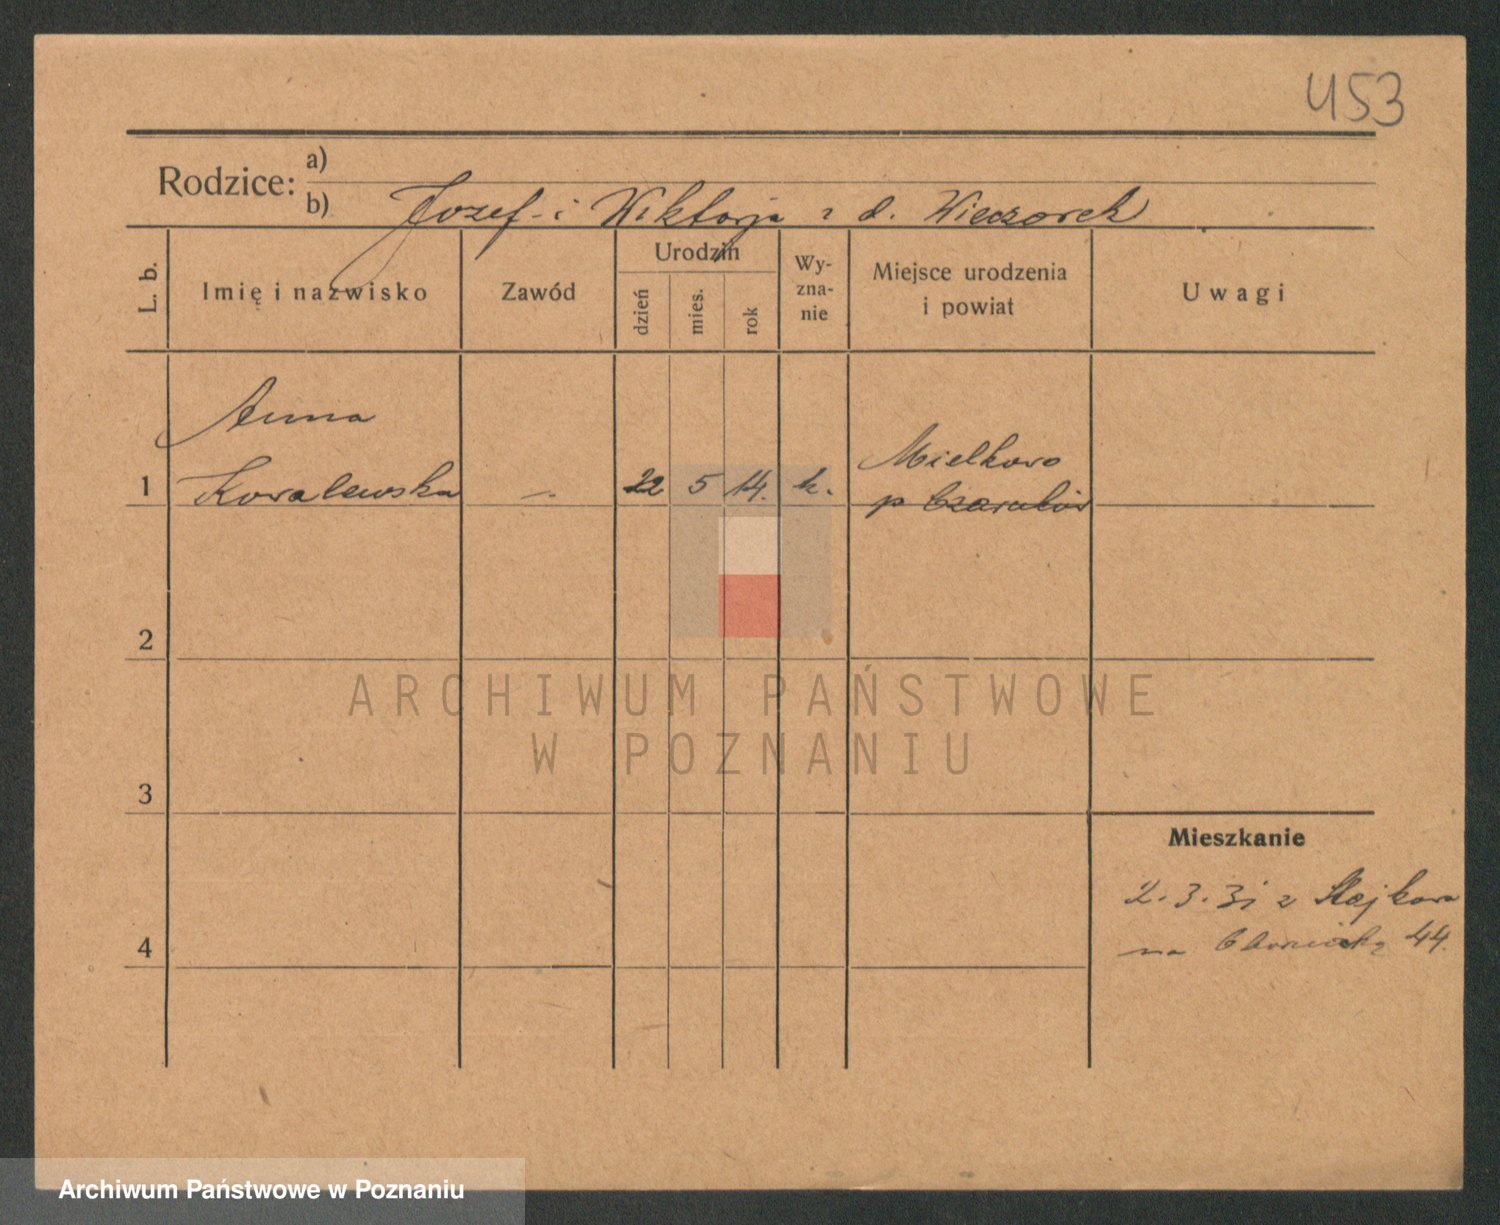 453
Rodzice: a)
b) Józef i Wiktorja z d. Wieczorek
L. b.
Imię i nazwisko
Zawód
Urodzin
dzień
mies.
rok
Wy-
zna-
nie
Miejsce urodzenia
i powiat
Uwagi
Anna
1 Kowalewska - 22 5 14. k.
Mielkowo
p Czarnków
2
3
4
Mieszkanie
2. 3. 31 z
na 44.
ARCHIWUM PAŃSTWOWE
W POZNANIU
Archiwum Państwowe w Poznaniu